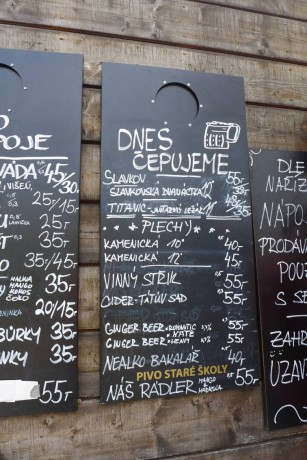 POJE
45/
30,-
25/15
25,-
35,-
35/45
MALINA
MANGO
35,-
20/15
BŮRKY 35,-
NKY 35,-
55,-
DNES
ČEPUJEME
SLAVKOV 55,-
SLAVKOVSKÁ DVANÁCTKA
TITANIC - JANTAROVÝ LEŽÁK 11°
PLECHY
KAMENICKÁ 10° 40,-
KAMENICKÁ 12° 45,-
VINNÝ STŘIK 55,-
CIDER - TÁTŮV SAD 55,-
GINGER BEER ROMANTIC 4%
GINGER BEER HEAVY 4%
NEALKO BAKALÁŘ 40,-
PIVO STARÉ ŠKOLY
NÁŠ RADLER MANGO 55,-
DLE
NÁPO
PRODÁV
POUZ
S S
ZAHR
UZAV